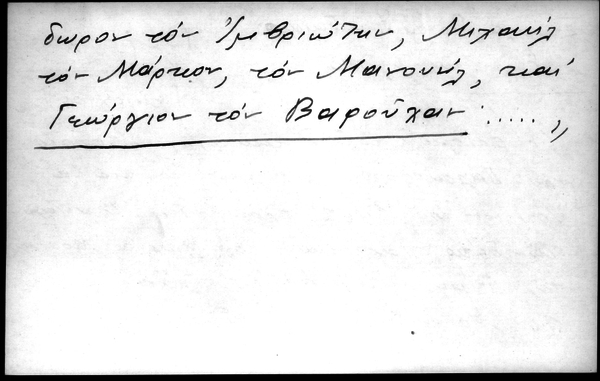 δωρον τόν Ἰμβριώτην, Μιχαήλ
τόν Μάρκον, τόν Μανουήλ, καί
Γεώργιον τόν Βαροῦχαν .....,,